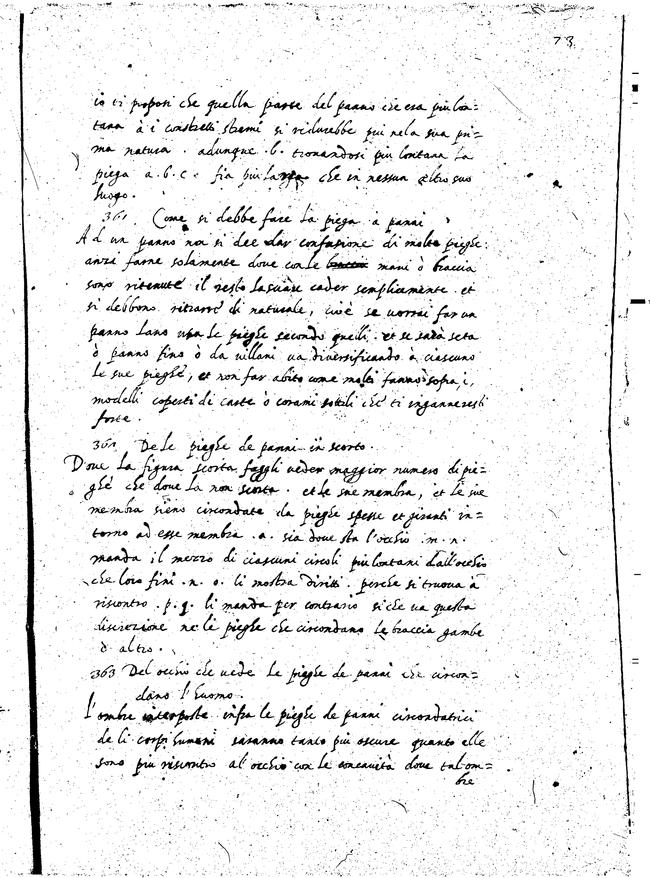 73
io ti proposi che quella parte del panno che era piu lon=
tana à i constretti stremi si ridurebbe piu nela sua pri=
ma natura . adunque .b. trouandosi piu lontana la
piega a.b.c. fia piu larga che in nessun altro suo
luogo.
361 Come si debbe fare la piega a panni
Ad un panno non si dee dar confusione di molte pieghe:
anzi farne solamente doue con le mani ò braccia
sono ritenute il resto lasciare cader semplicemente . et
si debbono ritrarre di naturale, cioè se uorrai far un
panno lano usa le pieghe secondo quelli . et se sarà seta
ò panno fino ò da uillani ua diuersificando a ciascuno
le sue pieghe, et non far abito come molti fanno sopra i,
modelli coperti di carte ò corami sottili che ti inganneresti
forte .
362 De le pieghe de panni in scorto .
Doue la figura scorta faggli ueder maggior numero di pie=
ghe che doue la non scorta . et le sue membra, et le sue
membra sieno circondate da pieghe spesse et giranti in=
torno ad esse membra .a. sia doue sta l'occhio .m.n.
manda il mezzo di ciascuni circoli piu lontani dall'occhio
che loro fini .n.o. li mostra diritti . perche si truoua à
riscontro .p.q. li manda per contrario si che ua questa
discrezione ne le pieghe che circondano le braccia gambe
ò altro .
363 Del occhio che uede le pieghe de panni che circon=
dano l'huomo .
l'ombre interposte infra le pieghe de panni circondatrici
de li corpi humani saranno tanto piu oscure quanto elle
sono piu riscontro al'occhio con le concauità doue tal om=
bre